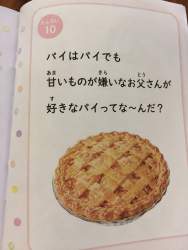 10
パイはパイでも
あま きら とう
甘いものが嫌いなお父さんが
す
好きなパイってな〜んだ？